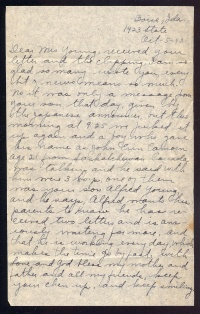 Boise, Ida.
1923 State
Oct.
Dear Mrs Young, received your
letter and the clipping. I am so
glad so many wrote you, every
bit of news means so much.
No it was only a message from
your son that day, given by
the Japanese announcer, but this
morning at 9:05 we picked it
up again and a boy who gave
his name as John
age 21 from Saskatchewan Canada
was talking and he said with
him were 3 boys, one of them
was your son Alfred Young,
and he says, Alfred wants his
parents to know he has re-
ceived two letters and is anx-
iously waiting for more, and
that he is working every day, which
makes the time go by fast, with
love and God bless my mother and
father and all my friends, keep
your chin up, and keep smiling